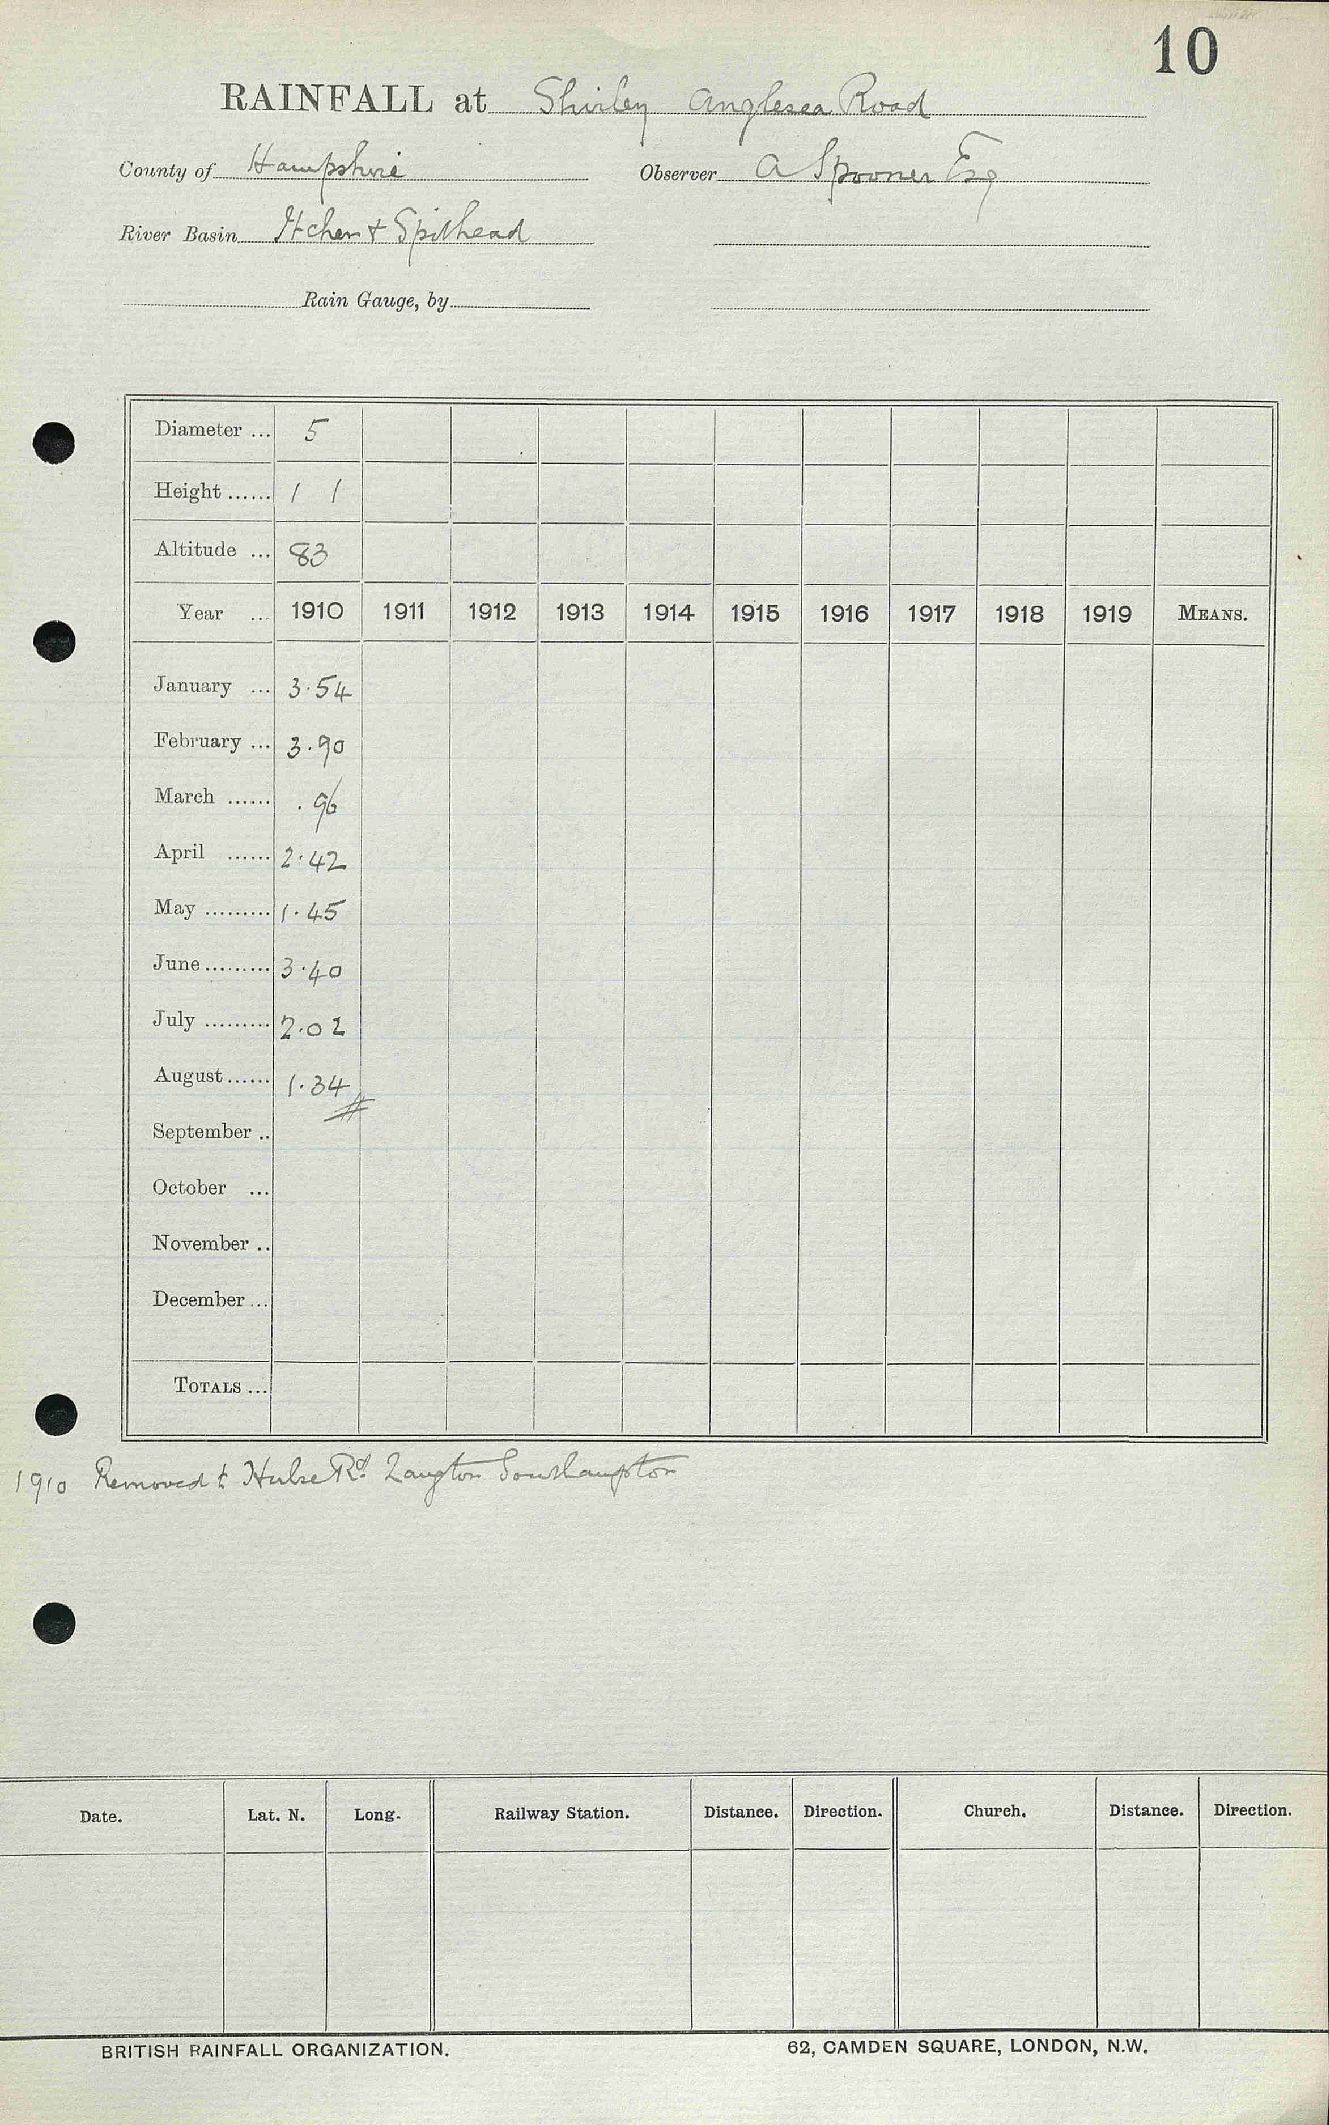 10
RAINFALL at Shirley Anglesea Road
County of Hampshire Observer A Spooner Esq
River Basin Itchen + Spithead
Rain Gauge, by
Diameter ... 5
Height ...... 1 1
Altitude ... 83
Year ... 1910 1911 1912 1913 1914 1915 1916 1917 1918 1919 MEANS.
January ... 3.54
February ... 3.90
March ...... .96
April ...... 2.42
May ......... 1.45
June ......... 3.40
July ......... 2.02
August ...... 1.34
September ..
October ...
November ..
December ...
TOTALS ...
1910 Removed to Hulse Rd Southampton
Date. Lat. N. Long. Railway Station. Distance. Direction. Church. Distance. Direction.
BRITISH RAINFALL ORGANIZATION. 62, CAMDEN SQUARE, LONDON, N.W.